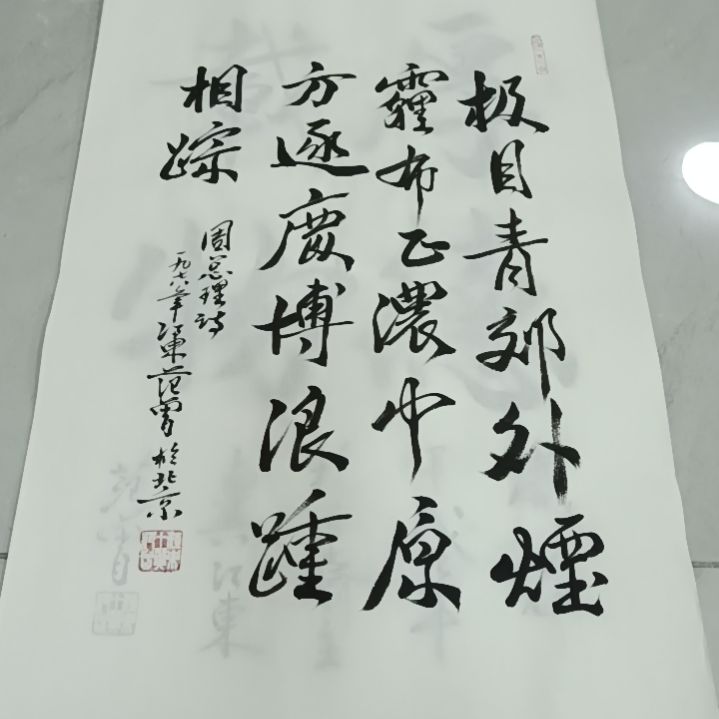 极目青郊外煙
霾布正濃中原
方逐鹿博浪踵
相踪
周总理诗
一九七八年江東范曾於北京